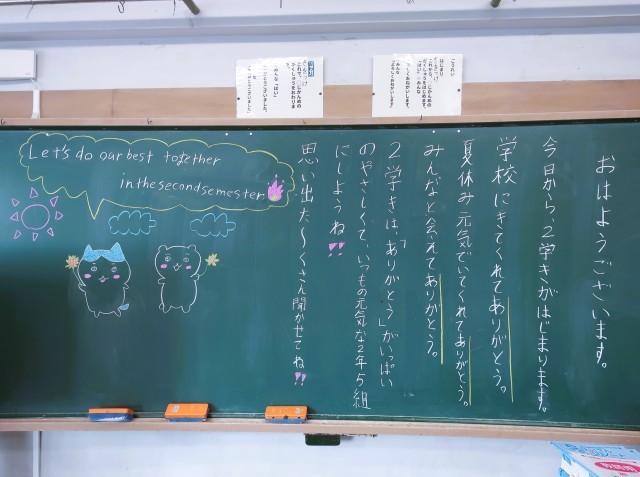 おはようございます。
今日から、2学きがはじまります。
学校にきてくれてありがとう。
夏休み元気でいてくれてありがとう。
みんなと会えてありがとう。
2学きは、「ありがとう」がいっぱい
のやさしくて、いつもの元気な2年5組
にしようね!!
思い出た～くさん聞かせてね!!
Let's do our best together
in the second semester
ごうれい
はじまり